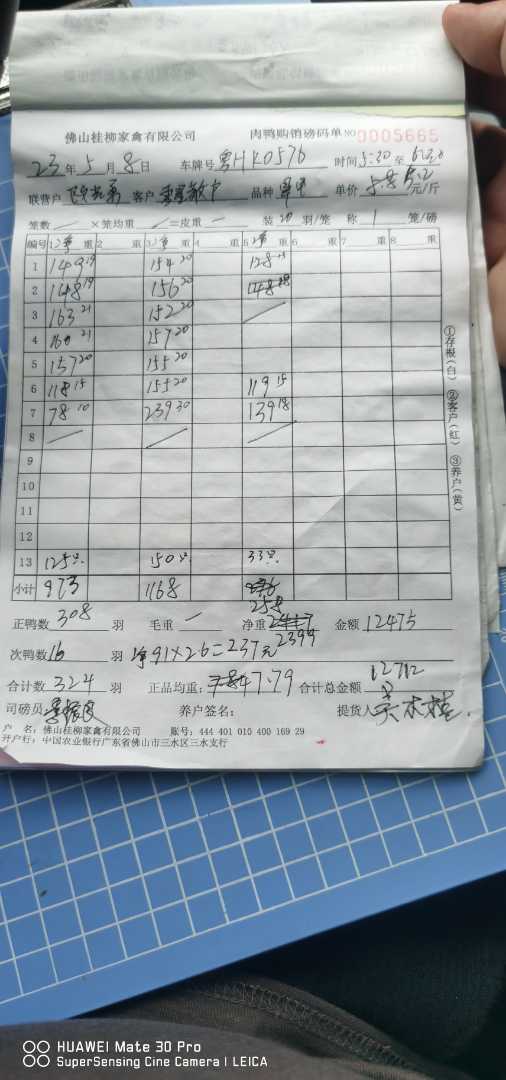 佛山桂柳家禽有限公司 肉鸭购销磅码单 NO 0005665
23年5月8日 车牌号 粤HK0576 时间5:30至6:30
联营户 客户 品种 单价 5.2 元/斤
笼数 ×笼均重 =皮重 装 20 羽/笼 称 1 笼/磅
编号 1 重 2 重 3 重 4 重 5 重 6 重 7 重 8 重
1 149 19 154 20 128 15
2 148 19 156 20 148 18
3 163 21 152 20
4 160 21 157 20
5 157 20 155 20
6 118 15 155 20 119 15
7 78 10 239 30 139 18
8
9
10
11
12
13 125只 150只 33只
小计 973 1168 258
正鸭数 308 羽 毛重 净重 2399 金额 12475
次鸭数 16 羽 净91×2.6=237元
合计数 324 羽 正品均重: 7.79 合计总金额 12712
司磅员 养户签名: 提货人
户 名: 佛山桂柳家禽有限公司 账号: 444 401 010 400 169 29
开户行: 中国农业银行广东省佛山市三水区三水支行
①存根(白) ②客户(红) ③养户(黄)
HUAWEI Mate 30 Pro
SuperSensing Cine Camera | LEICA